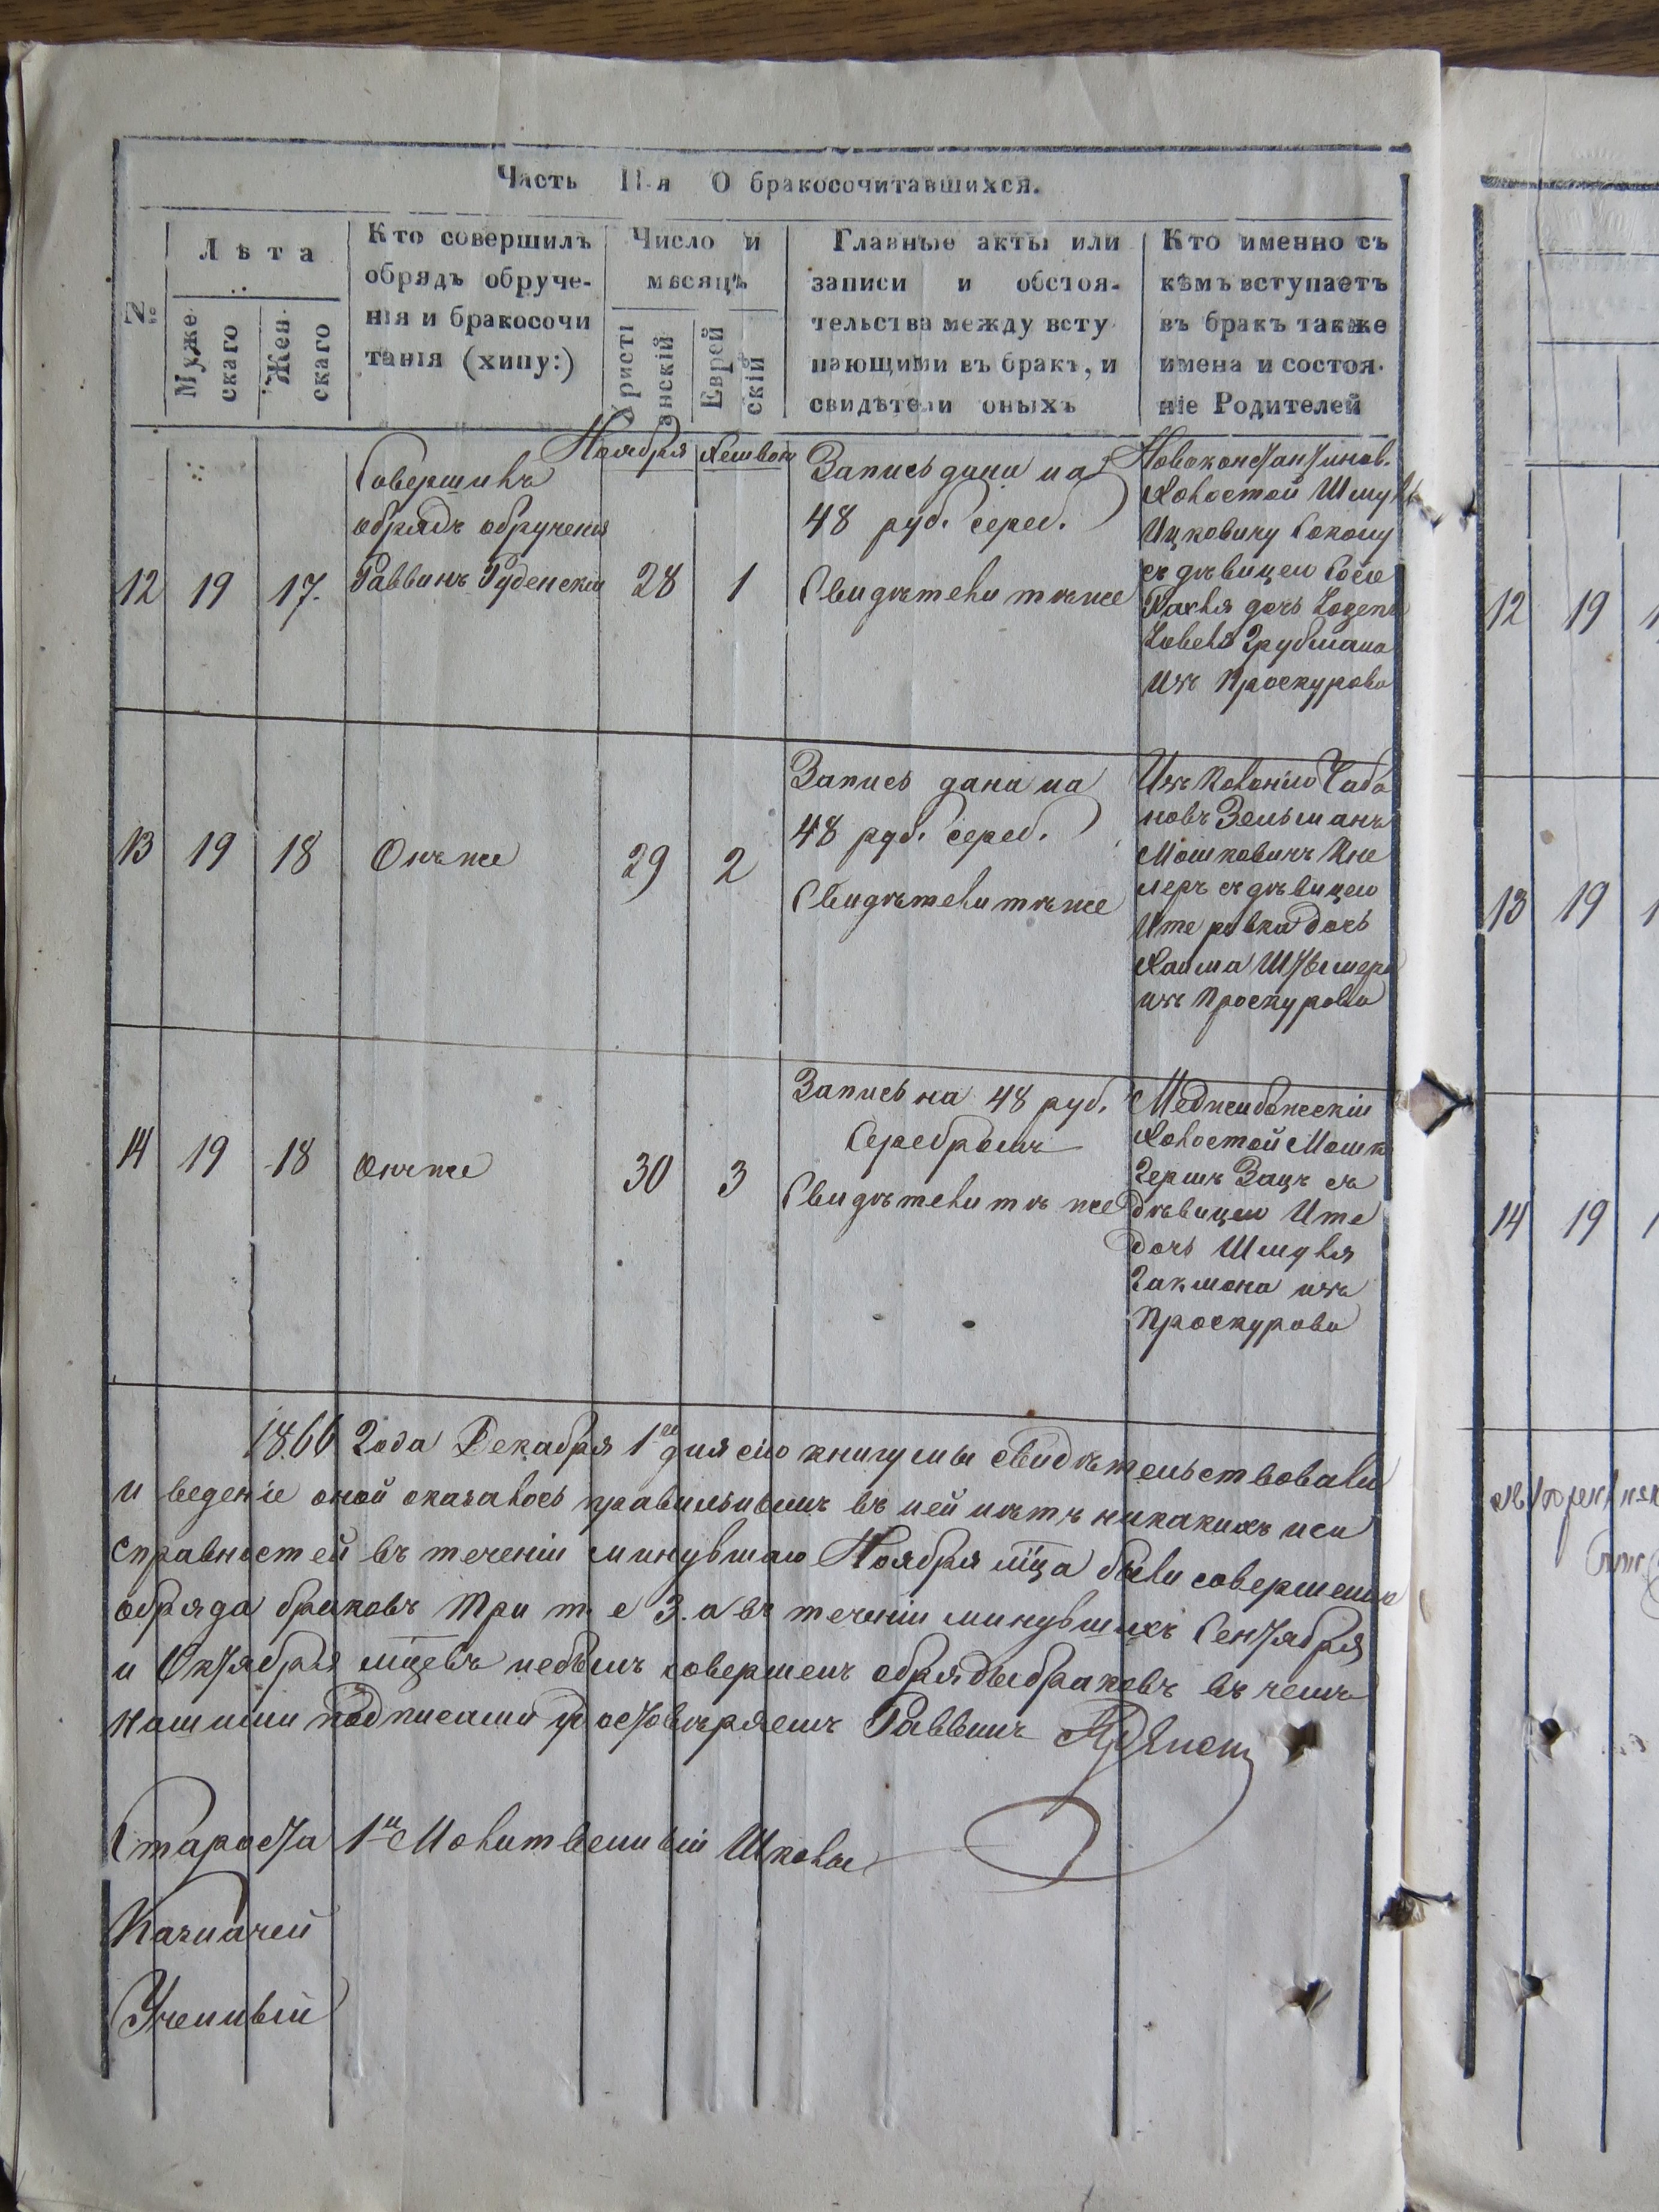 Часть II-я О бракосочитавшихся.
№
Лѣта
Муже
скаго
Жен
скаго
Кто совершилъ
обрядъ обруче-
нія и бракосочи
танія (хипу:)
Число и
мѣсяцъ
Христі
анскій
Еврей
скій
Главные акты или
записи и обстоя-
тельства между всту
пающими въ бракъ, и
свидѣтели оныхъ
Кто именно съ
кѣмъ вступаетъ
въ бракъ также
имена и состоя-
ніе Родителей
Ноября Хешвон
12 19 17.
Совершилъ
обрядъ обрученія
Раввинъ Руденскій
28 1
Запись дана на
48 руб. сереб.
Свидѣтели тѣже
Новоконстантинов.
Холостой Шмуль
Ицковичу Сокому
съ дѣвицею Сосіе
Рахля дочь
Грубмана
изъ Проскурова
13 19 18 Онъ же 29 2
Запись дана на
48 руб. сереб.
Свидѣтели тѣже
Изъ Колонію Чаба
новъ Зельманъ
Мошковичъ Кне
леръ съ дѣвицею
Ите ривка дочь
Хаима
изъ Проскурова
14 19 18 Онъ же 30 3
Запись на 48 руб.
Серебромъ
Свидѣтели тѣ же
Меджибожскій
Холостой Мошк
Гершъ Зацъ съ
дѣвицею Ите
дочь Шмуля
Гакмана изъ
Проскурова
1866 Года Декабря 1го дня сію книгу мы свидѣтельствовали
и веденіе оной оказалось правильнымъ въ ней нѣтъ никакихъ неи
справностей въ теченіи минувшаго Ноября мца были совершено
обряда браковъ три т. е 3. а въ теченіи минувшихъ Сентября
и Октября мцевъ небылъ совершен обряды браковъ въ чемъ
нашими подписами удостовѣряемъ Раввинъ
Староста 1й Молитвенный Школы
Казначей
Ученный
12 19
13 19
14 19